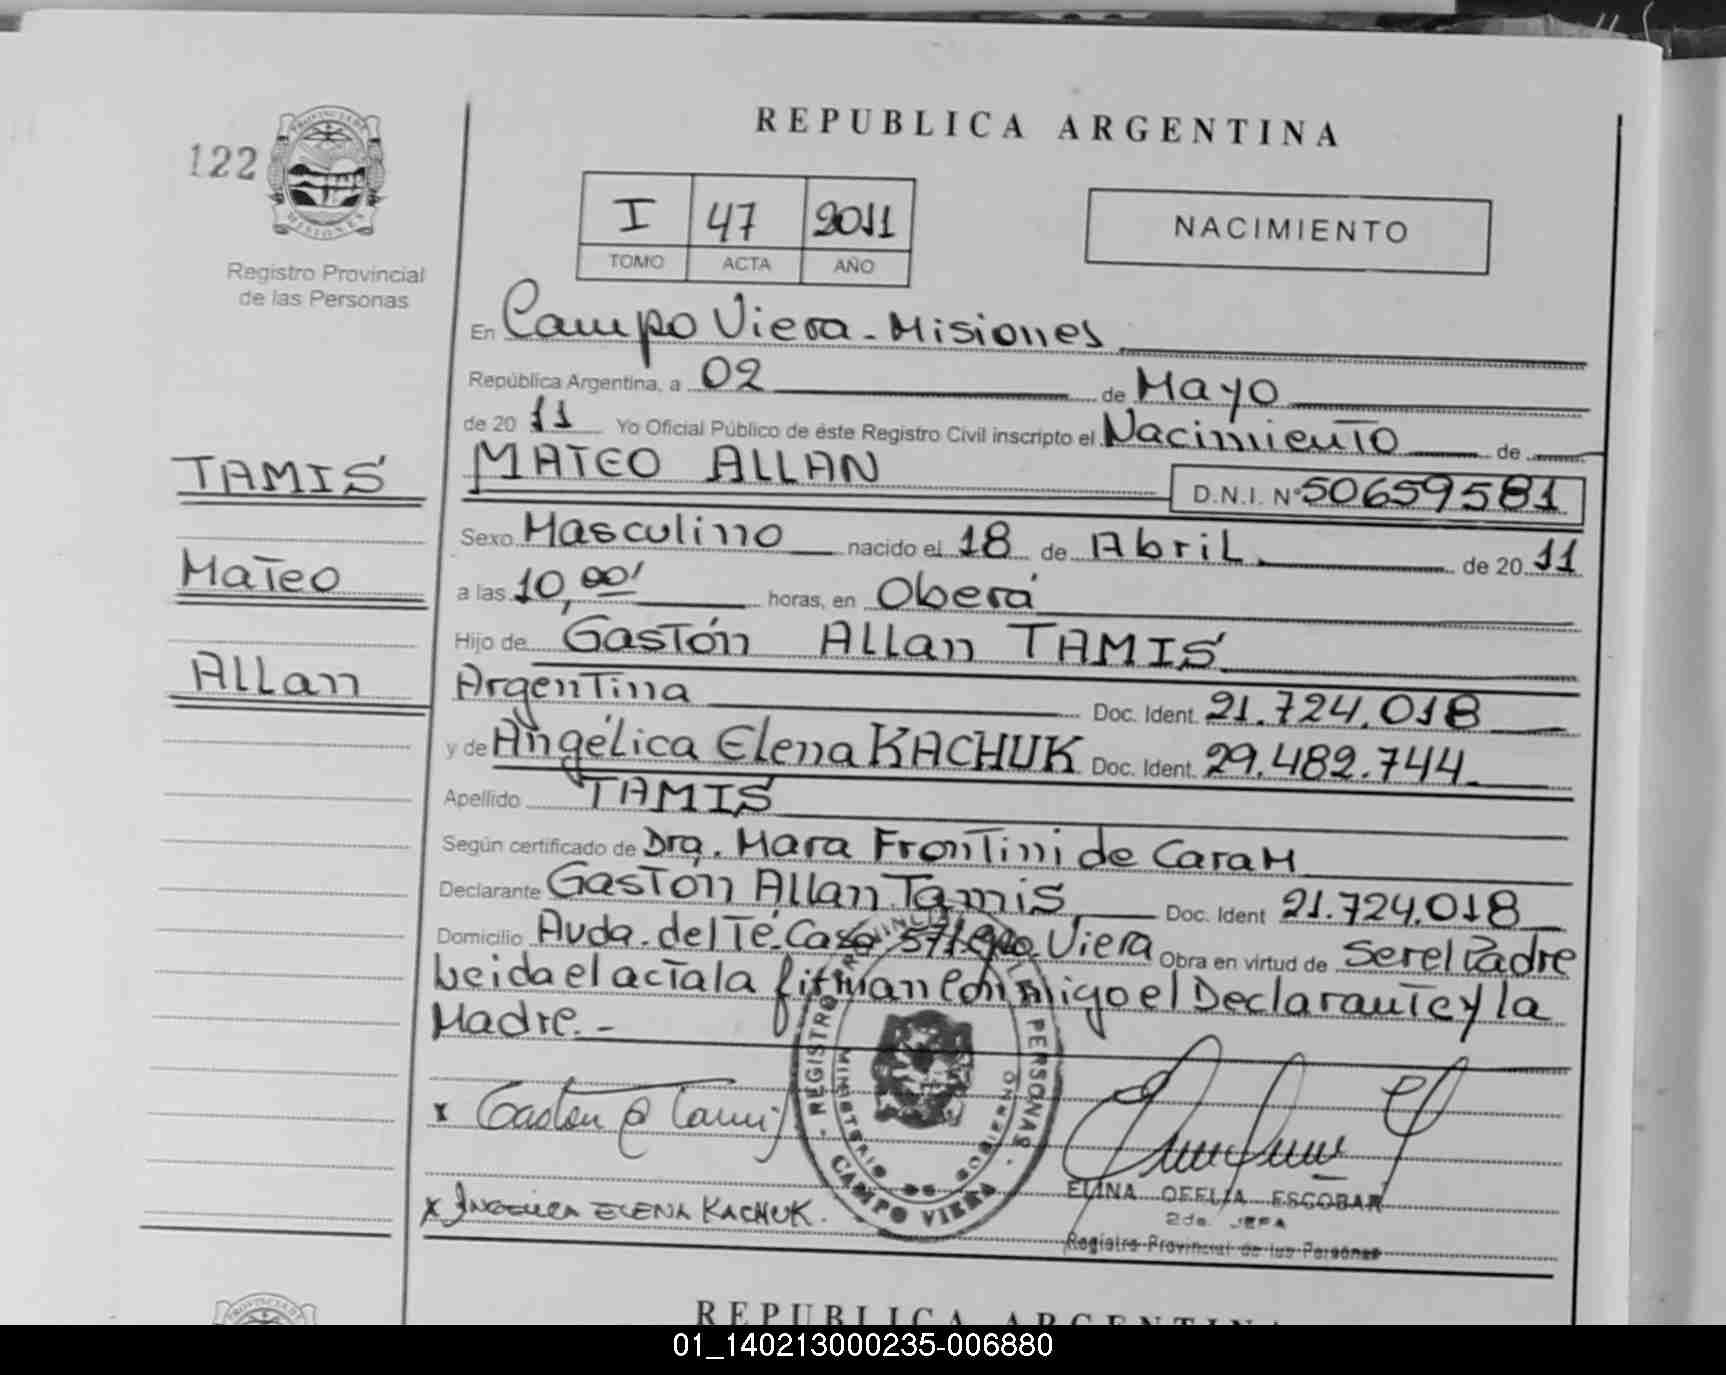 REPUBLICA ARGENTINA
122
PROVINCIA DE MISIONES
Registro Provincial
de las Personas
I 47 2011
TOMO ACTA AÑO
NACIMIENTO
En Campo Viera - Misiones
República Argentina, a 02 de Mayo
de 2011 Yo Oficial Público de éste Registro Civil inscripto el Nacimiento de
TAMIS
Mateo
Allan
MATEO ALLAN D.N.I. Nº 50659581
Sexo Masculino nacido el 18 de Abril de 2011
a las 10,00' horas, en Oberá
Hijo de Gastón Allan TAMIS
Argentina Doc. Ident. 21.724.018
y de Angélica Elena KACHUK Doc. Ident. 29.482.744
Apellido TAMIS
Según certificado de Dra. Mara Frontini de Caram
Declarante Gastón Allan Tamis Doc. Ident 21.724.018
Domicilio Avda. del Té. Casa 57 Cpo Viera Obra en virtud de ser el Padre
Leida el acta la firman conmigo el Declarante y la
Madre.-
REGISTRO PROVINCIAL DE LAS PERSONAS
MINISTERIO DE GOBIERNO
CAMPO VIERA
x Gaston a Tamis
x ANGELICA ELENA KACHUK.
ELINA OFELIA ESCOBAR
2da. JEFA
Registro Provincial de las Personas
REPUBLICA ARGENTINA
01_140213000235-006880